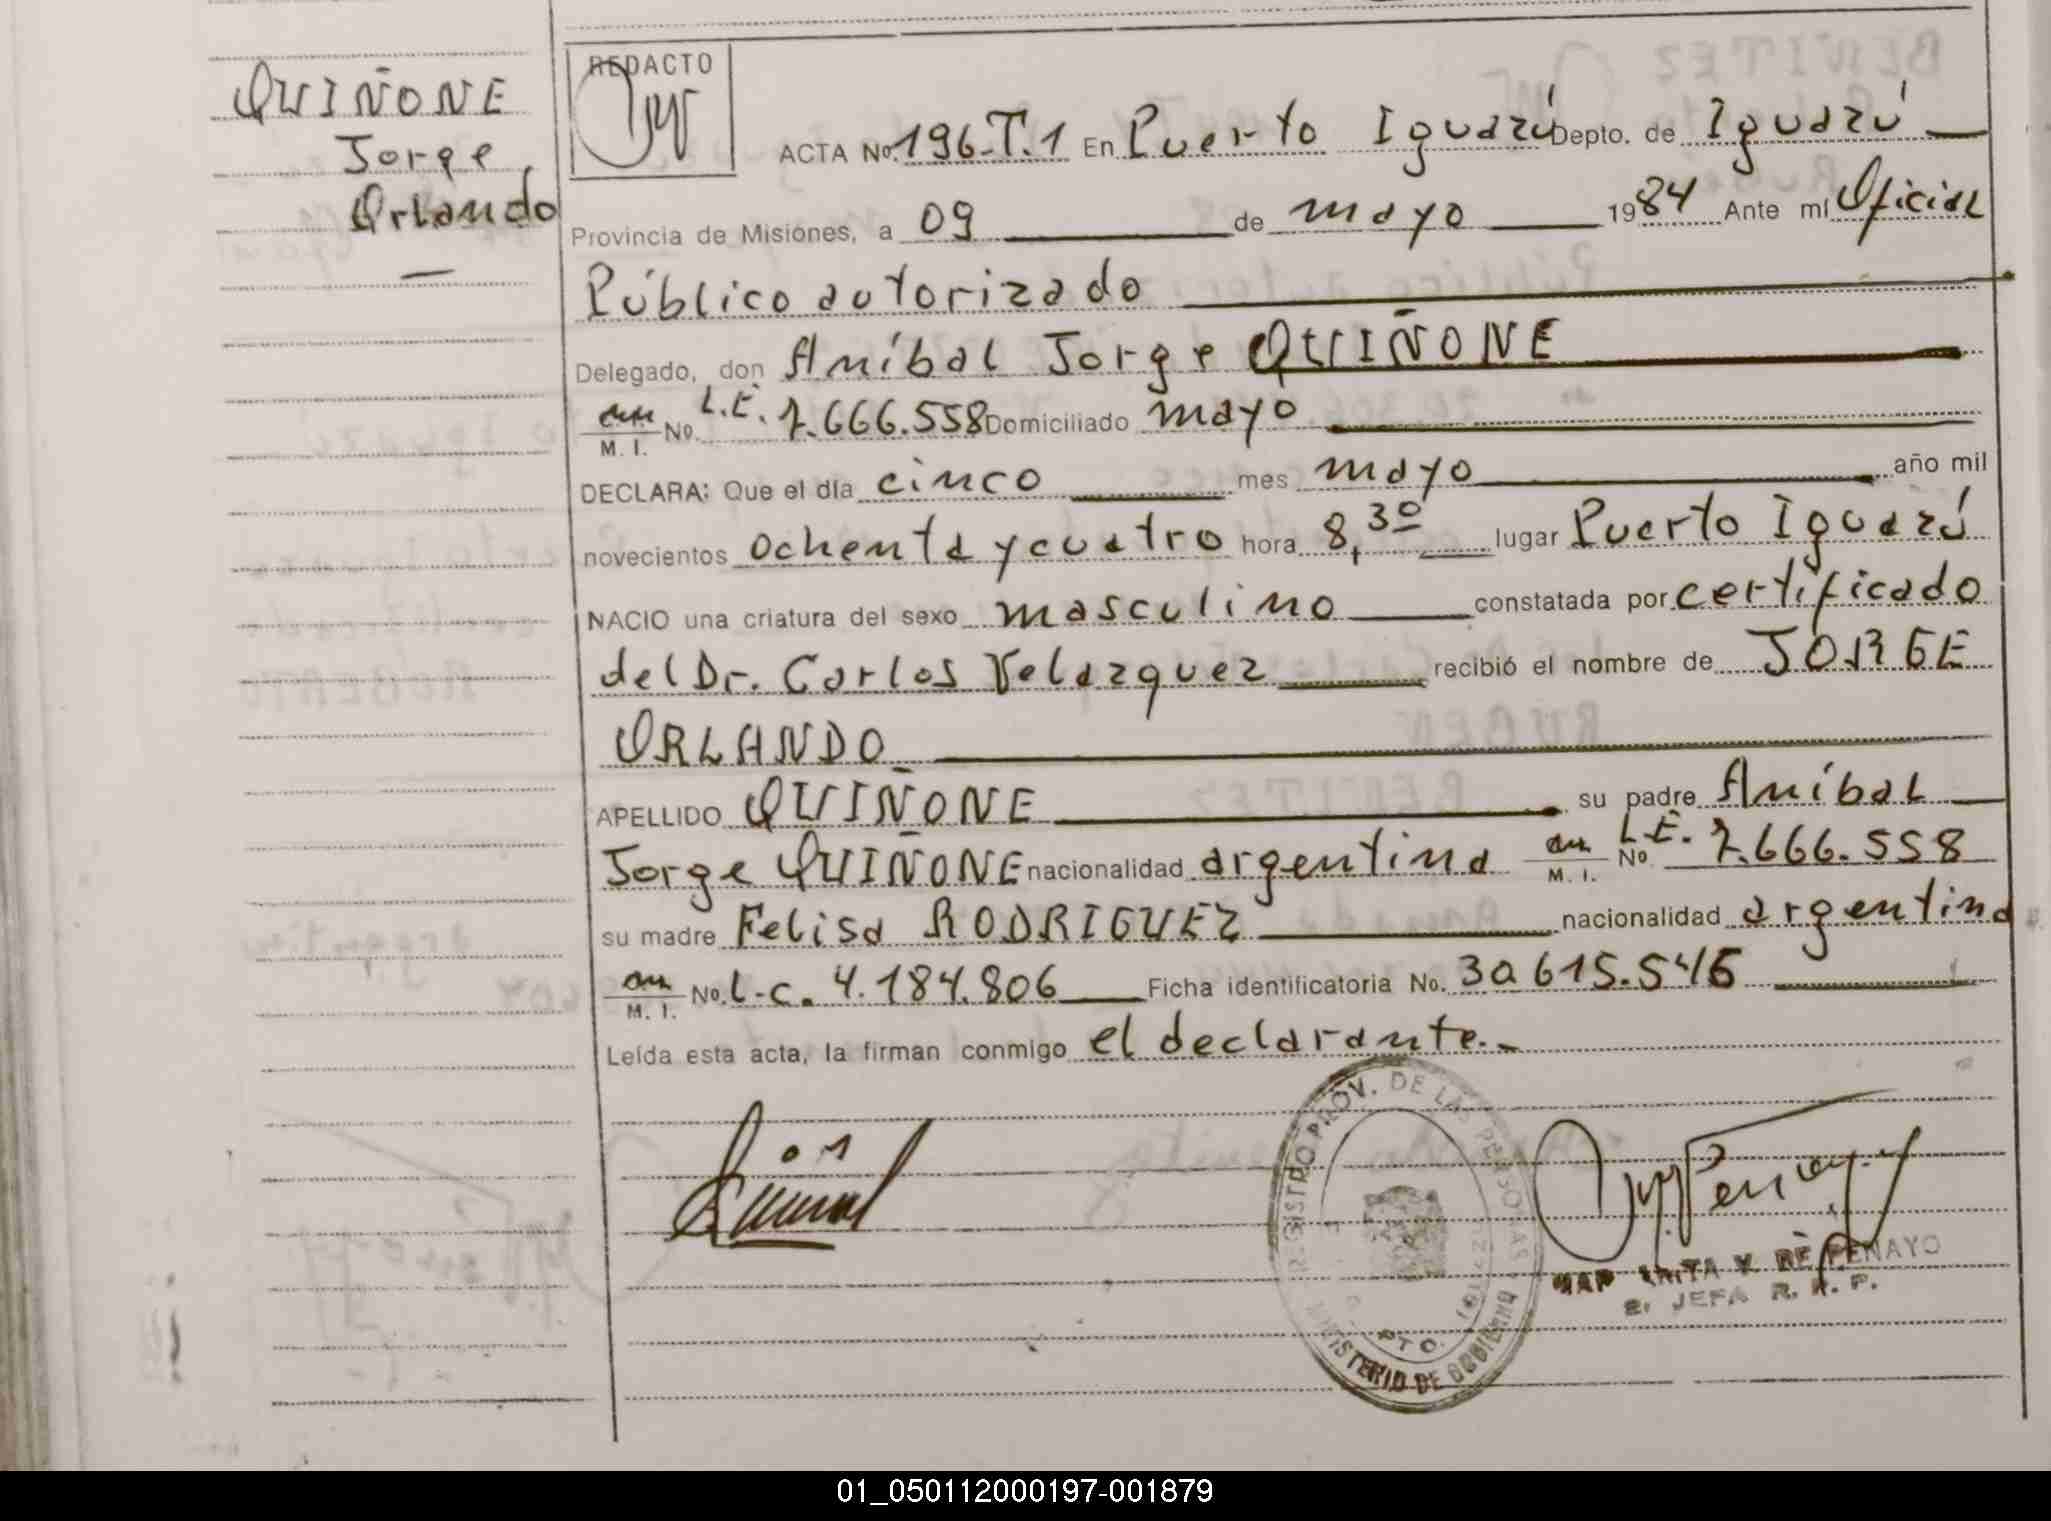 QUIÑONE
Jorge
Orlando
REDACTO
ACTA No. 196-T.1 En Puerto Iguazú Depto. de Iguazú
Provincia de Misiones, a 09 de mayo 1984 Ante mí Oficial
Público autorizado
Delegado, don Aníbal Jorge QUIÑONE
M. I. No. L.E. 7.666.558 Domiciliado mayo
DECLARA: Que el día cinco mes mayo año mil
novecientos ochenta y cuatro hora 8,30 lugar Puerto Iguazú
NACIO una criatura del sexo masculino constatada por certificado
del Dr. Carlos Velazquez recibió el nombre de JORGE
ORLANDO
APELLIDO QUIÑONE su padre Aníbal
Jorge QUIÑONE nacionalidad argentina M. I. No. L.E. 7.666.558
su madre Felisa RODRIGUEZ nacionalidad argentina
M. I. No. L.C. 4.184.806 Ficha identificatoria No. 30615.546
Leída esta acta, la firman conmigo el declarante.-
REGISTRO PROV. DE LAS PERSONAS
MINISTERIO DE GOBIERNO
PENAYO
JEFA R. P.
01_050112000197-001879